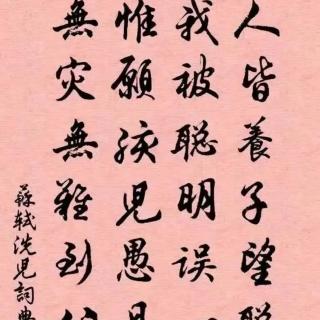 人皆養子望聰
我被聰明誤一
惟願孩兒愚且
無灾無難到
蘇軾洗兒詞